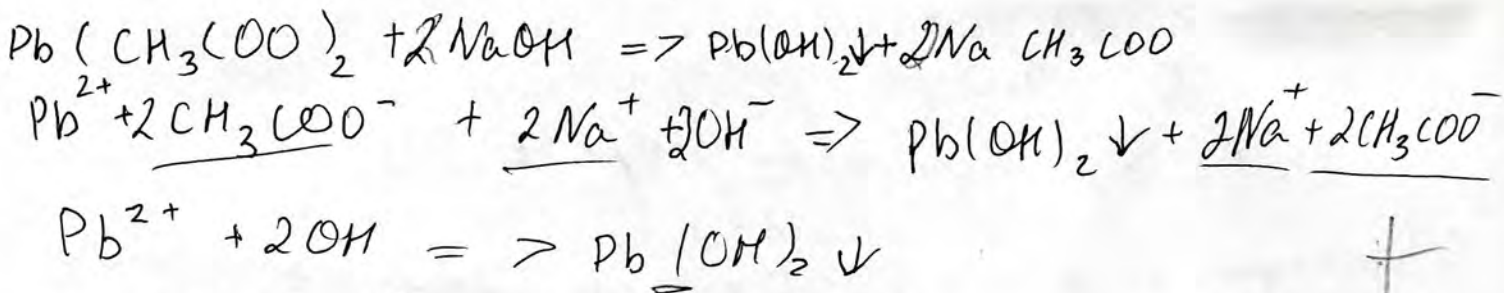 Pb(CH₃COO)₂ + 2NaOH => Pb(OH)₂↓ + 2Na CH₃COO
Pb²⁺ + 2CH₃COO⁻ + 2Na⁺ + 2OH⁻ => Pb(OH)₂↓ + 2Na⁺ + 2CH₃COO⁻
Pb²⁺ + 2OH => Pb(OH)₂↓
+